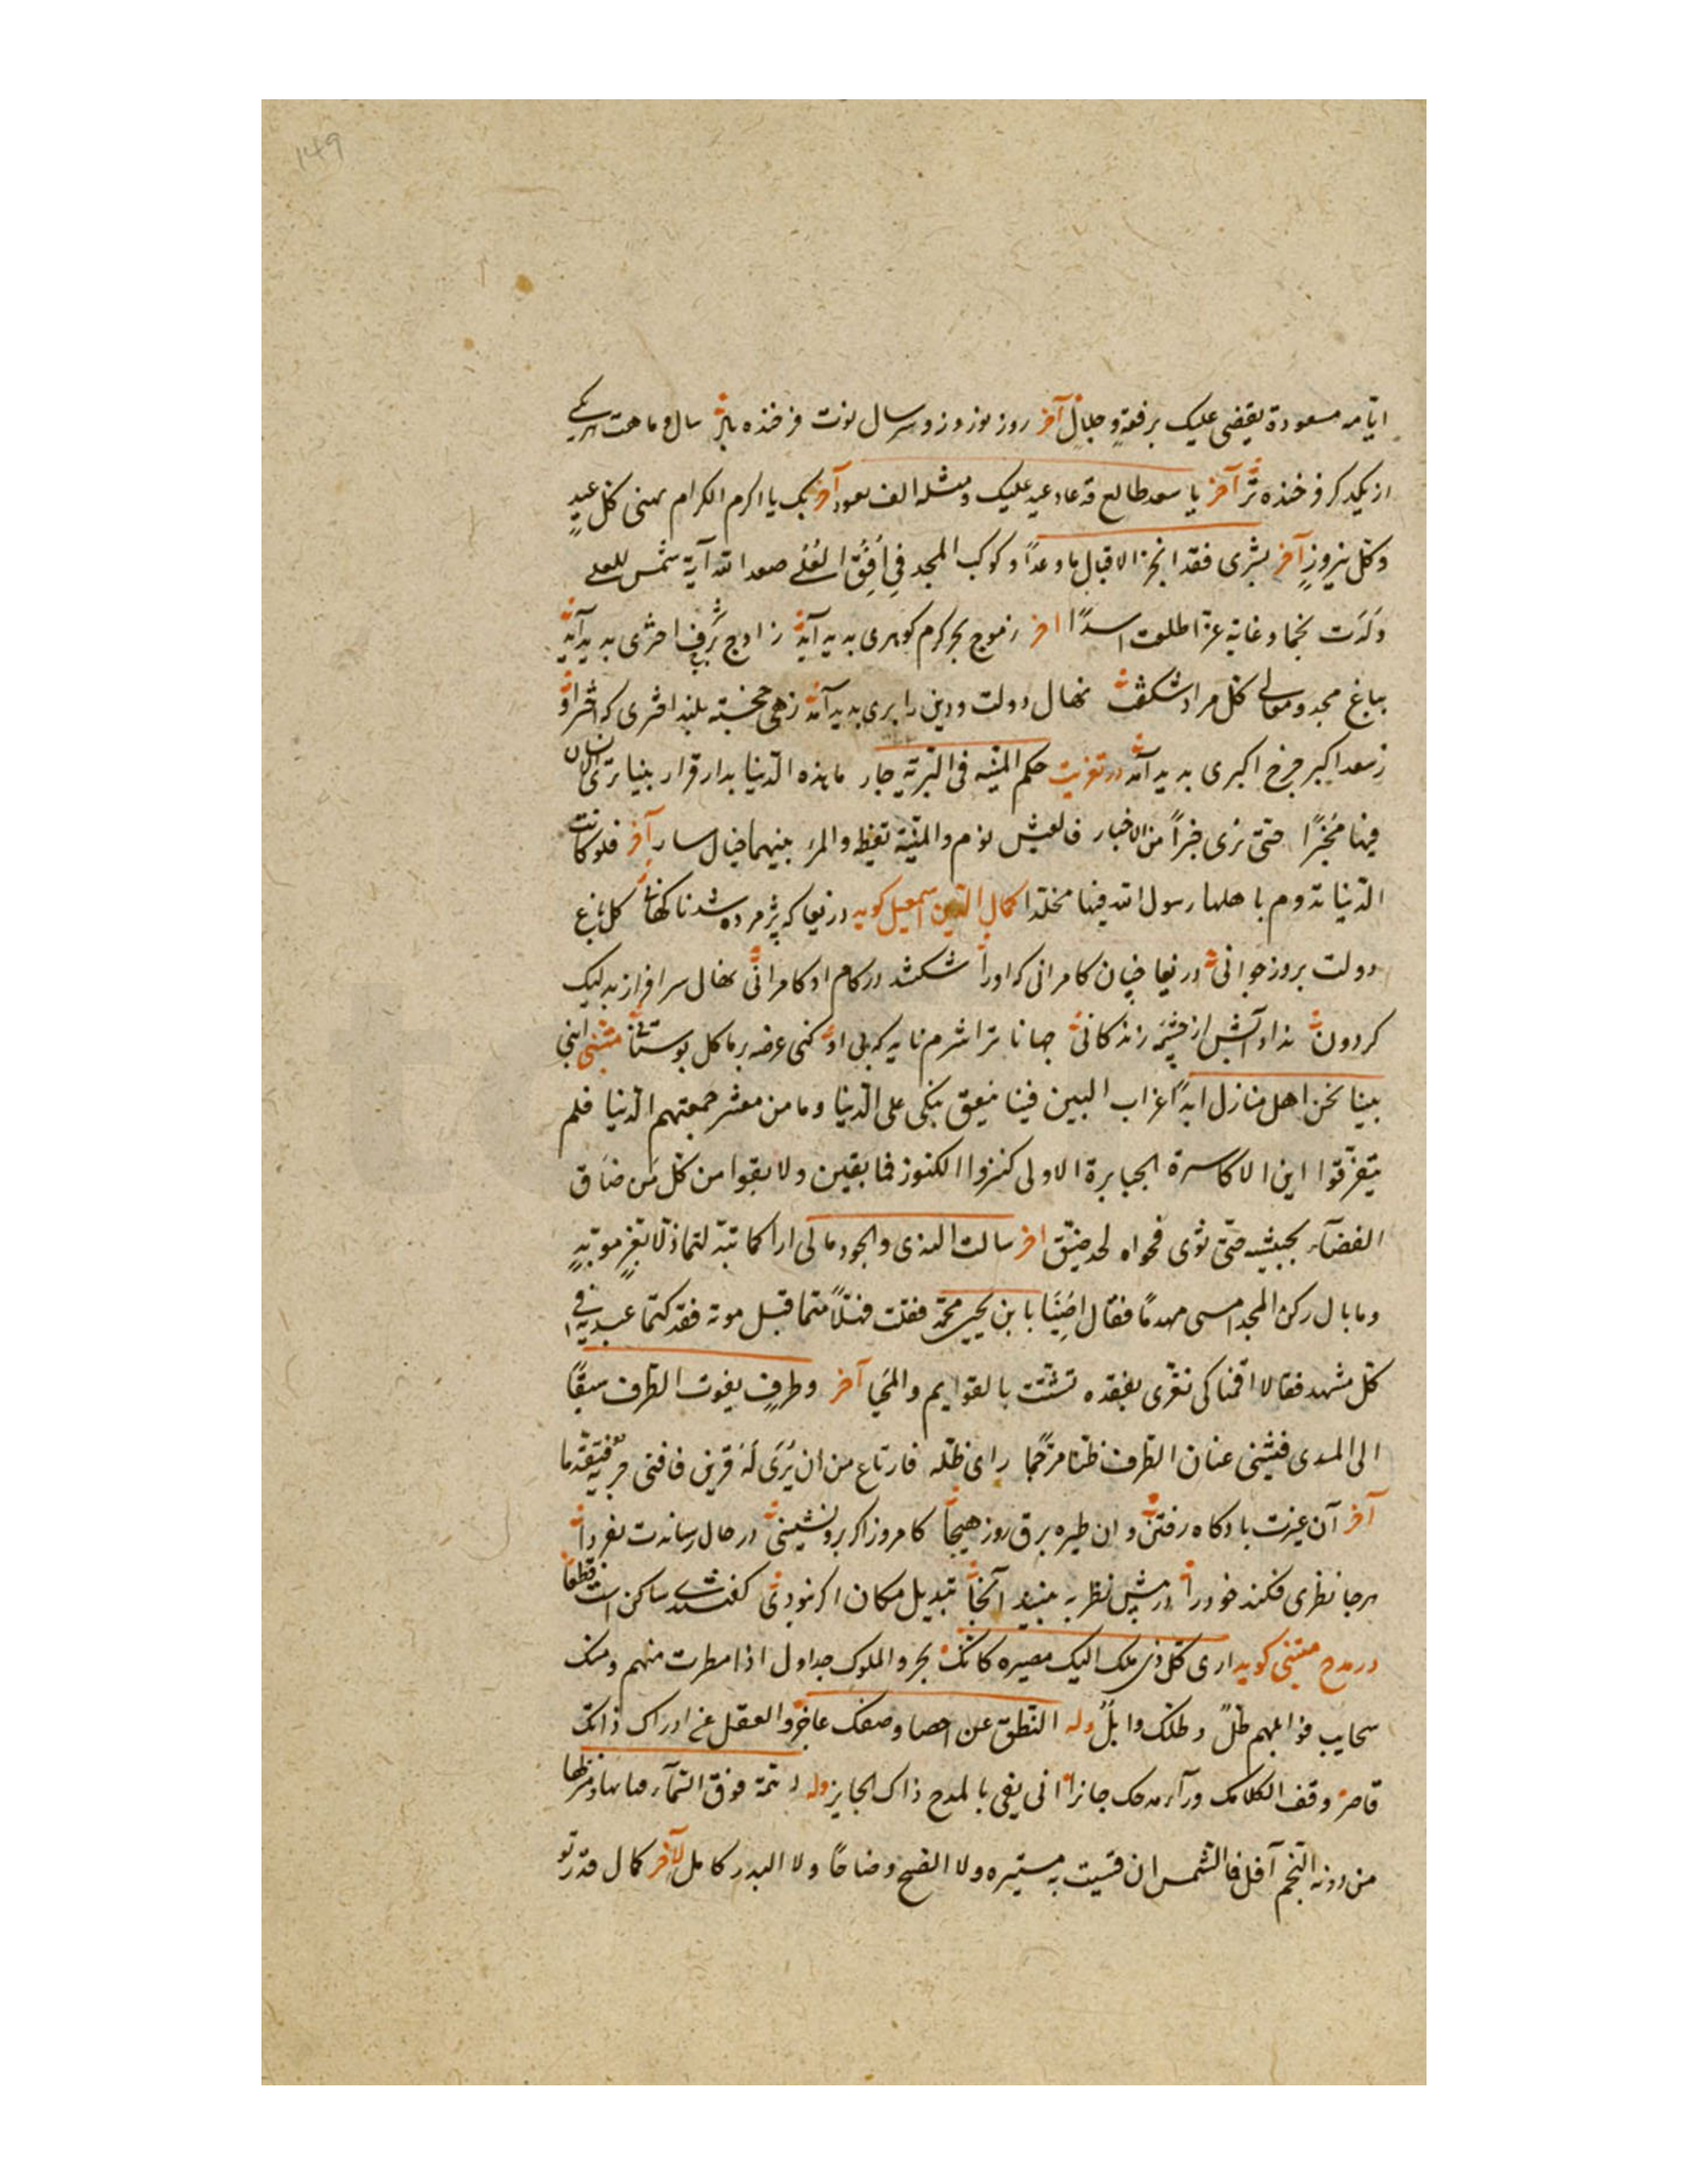 ۱۴۹
ایامه مسعودة یقضی علیک برفعة و جلال آخر روز نوروز و سر سال نوت فرخنده باد سال و ماهت
از یکدگر فرخنده تر آخر یا سعد طالع قد عاد عید علیک و مثله الف یعود آخر بک یا اکرم الکرام یهنی کل عید
و کل نیروز آخر بشری فقد انجز الاقبال ما وعدا و کوکب المجد فی افق العلی صعدا لله آیة شمس للعلی
ولدت نجما و غابة عز اطلعت اسدا اخر ز موج بحر کرم کوهری پدید آمد ز اوج شرف اختری پدید آمد
بباغ مجد و معالی کل مراد شکفت نهال دولت و دین را بری پدید آمد زهی خجسته بلند اختری که از اثر او
ز سعد اکبر چرخ اکبری پدید آمد در تعزیت حکم المنیة فی البریة جار ما هذه الدنیا بدار قرار بینا تری الانسان
فیها مخبرا حتی تری خبرا من الاخبار فالعیش نوم و المنیة یقظه و المرء بینهما خیال سار آخر فلو کانت
الدنیا تدوم باهلها رسول الله فیها مخلدا کمال الدین اسمعیل کوید دریغا که پژمرده شد ناکهانی کل باغ
دولت بروز جوانی دریغا چنان کامرانی که او را شکستند در کام او کامرانی نهال سرافراز بد لیک
کردون نداد آبش از چشمه زندکانی جهانا ترا شرم ناید که بی او کنی عرضه بر ما کل بوستانی متنبی ابنی
بینا نحن اهل منازل ابدا غراب البین فینا ینعق نبکی علی الدنیا و ما من معشر جمعتهم الدنیا فلم
یتفرقوا این الاکاسرة الجبابرة الاولی کنزوا الکنوز فما بقین و لا بقوا من کل من ضاق
الفضاء بجیشه حتی ثوی فحواه لحد ضیق اخر سالت الندی و الجود ما لی اراکما تبدلتما ذلا بعز موبد
و ما بال رکن المجد امسی مهدما فقال اصبنا بابن یحیی محمد فقلت فهلا متما قبل موته فقد کنتما عبدیه فی
کل مشهد فقالا اقمنا کی نعزی بفقده آخر و طرف یفوت الطرف سبقا
الی المدی فیثنی عنان الطرف ظنا مرجما رای ظله فارتاع من ان یری له قرین فافنی جریه فتقدما
آخر آن غیرت باد کاه رفتن و ان طیره برق روز هیجا کامروز اکر برو نشینی در حال رساندت بفردا
هر جا نظری فکند خود را در پیش نظر به بیند آنجا تبدیل مکان اکر نبودی کفتندی ساکن است قطعا
در مدح متنبی کوید اری کل ذی ملک الیک مصیره کانک بحر و الملوک جداول اذا مطرت منهم و منک
سحایب فوابلهم طل و طلک وابل وله النطق عن احصا وصفک عاجز و العقل عن ادراک ذاتک
قاصر وقف الکلام وراء مدحک جانزا انی یفی بالمدح ذاک الجایز وله
من دونه النجم آفل فما الشمس ان قیست به مستنیره و لا الصبح وضاحا و لا البدر کامل لآخر کمال قدر تو